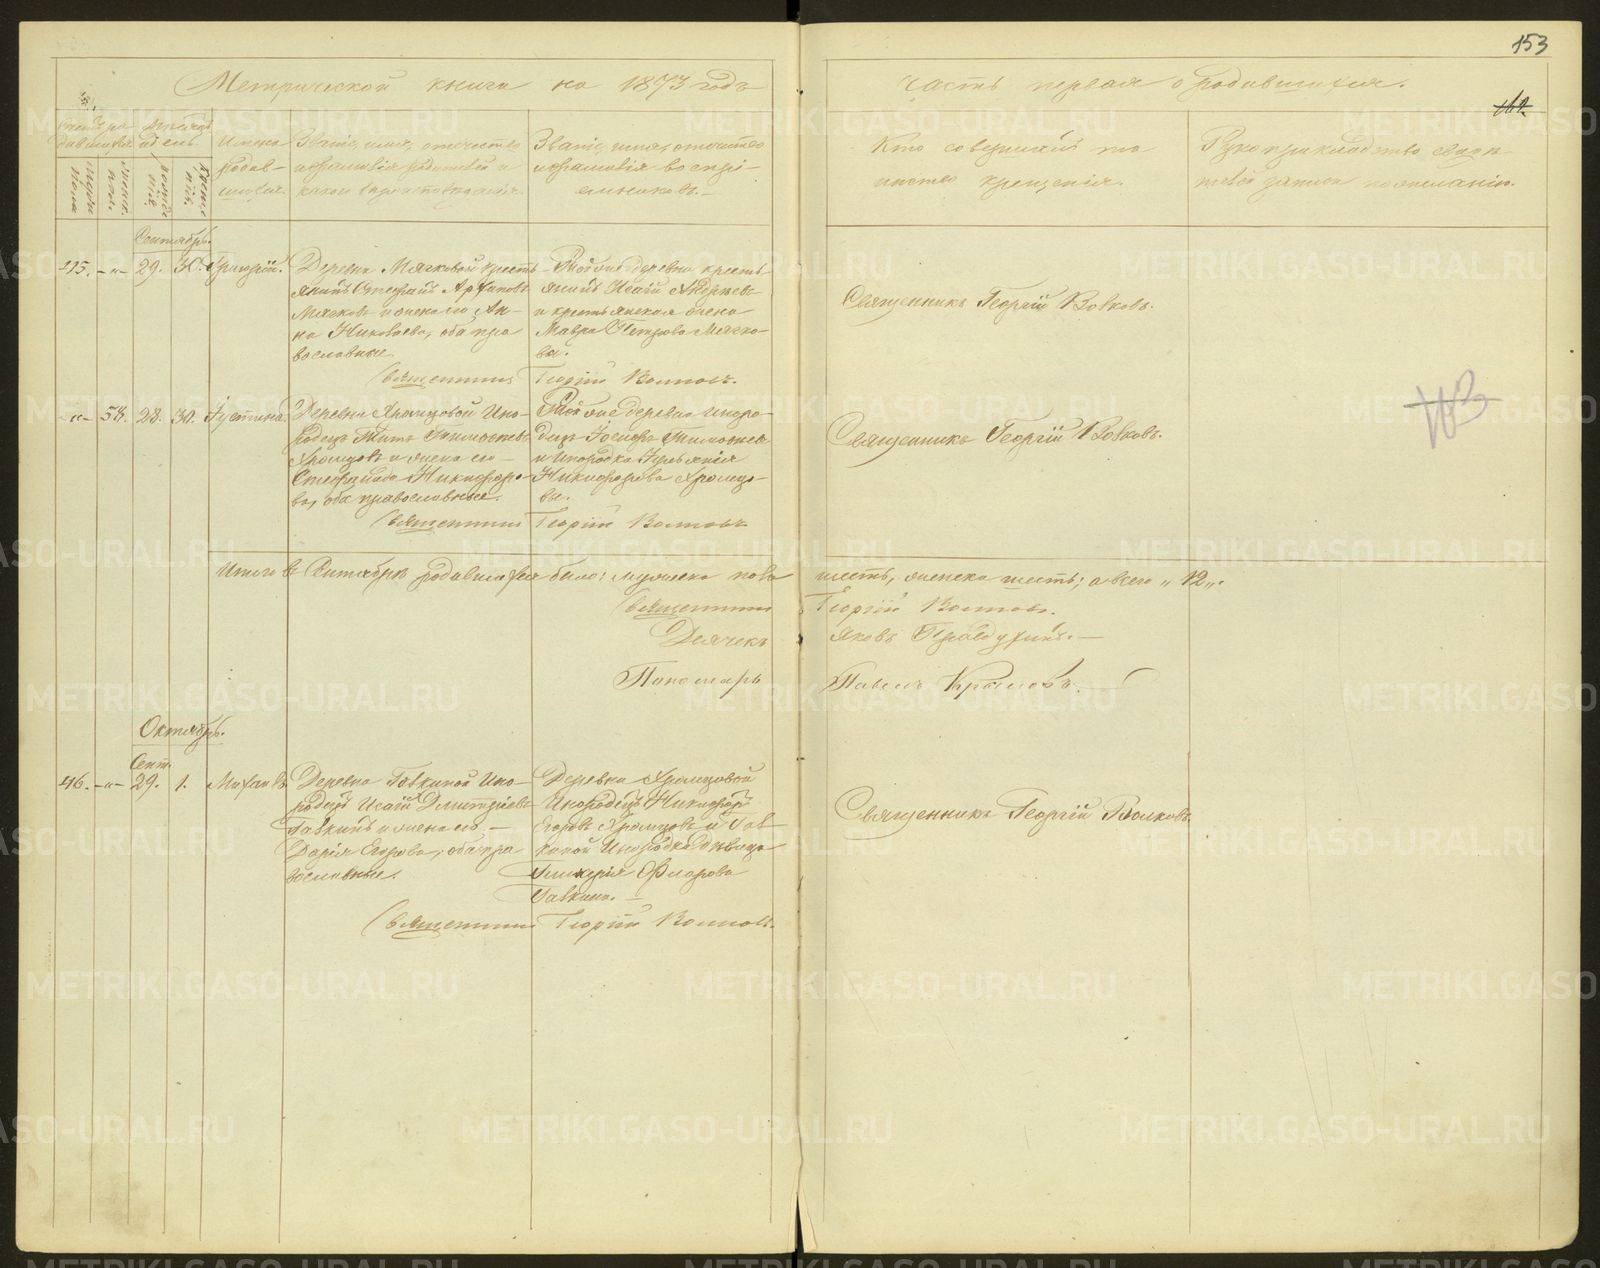 153
Метрической книги на 1873 годъ
часть первая о родившихся.
Счетъ ро-
дившихся
Мѣсяцъ
и день
Мужеска
пола
Женска
пола
рожде-
нія
креще-
нія.
Имена
родив-
шихся.
Званіе, имя, отчество
и фамилія родителей и
какого вѣроисповѣданія.
Званіе, имя, отчество
и фамилія воспрі-
емниковъ.
Кто совершалъ та-
инство крещенія.
Рукоприкладство свидѣ-
телей записи по желанію.
Сентябрь.
45. -"- 29. 30. Григорій.
Деревни Мягковой кресть-
янинъ Стефанъ Архиповъ
Мягковъ и жена его Ан-
на Николаева, оба пра-
вославные.
Той же деревни кресть-
янинъ Исаій Андреевъ
и крестьянская жена
Мавра Петрова Мягко-
ва.
Священникъ Георгій Волковъ.
Священникъ Георгій Волковъ.
-"- 58. 28. 30. Іустина.
Деревни Храмцовой Ино-
родецъ Титъ Тимофеевъ
Храмцовъ и жена его
Стефанида Никифоро-
ва, оба православные.
Той же деревни Иноро-
децъ Іосифъ Тимофеев
и Инородка Іуліанія
Никифорова Храмцо-
ва.
Священникъ Георгій Волковъ
Священникъ Георгій Волковъ.
Итого въ Сентябрѣ родившихся было: мужеска пола шесть, женска шесть; а всего "12".
Священникъ Георгій Волковъ.
Дьячекъ Яковъ
Пономарь Павелъ
Октябрь.
Сент.
46. -"- 29. 1. Михаилъ
Деревни Гавкиной Ино-
родецъ Исаій Дмитріевъ
Гавкинъ и жена его
Дарія Егорова, оба пра-
вославные.
Деревни Храмцовой
Инородецъ Никифоръ
Егоровъ Храмцовъ и Гав-
киной Инородка дѣвица
Гликерія Флорова
Гавкина.
Священникъ Георгій Волковъ.
Священникъ Георгій Волковъ.
METRIKI.GASO-URAL.RU